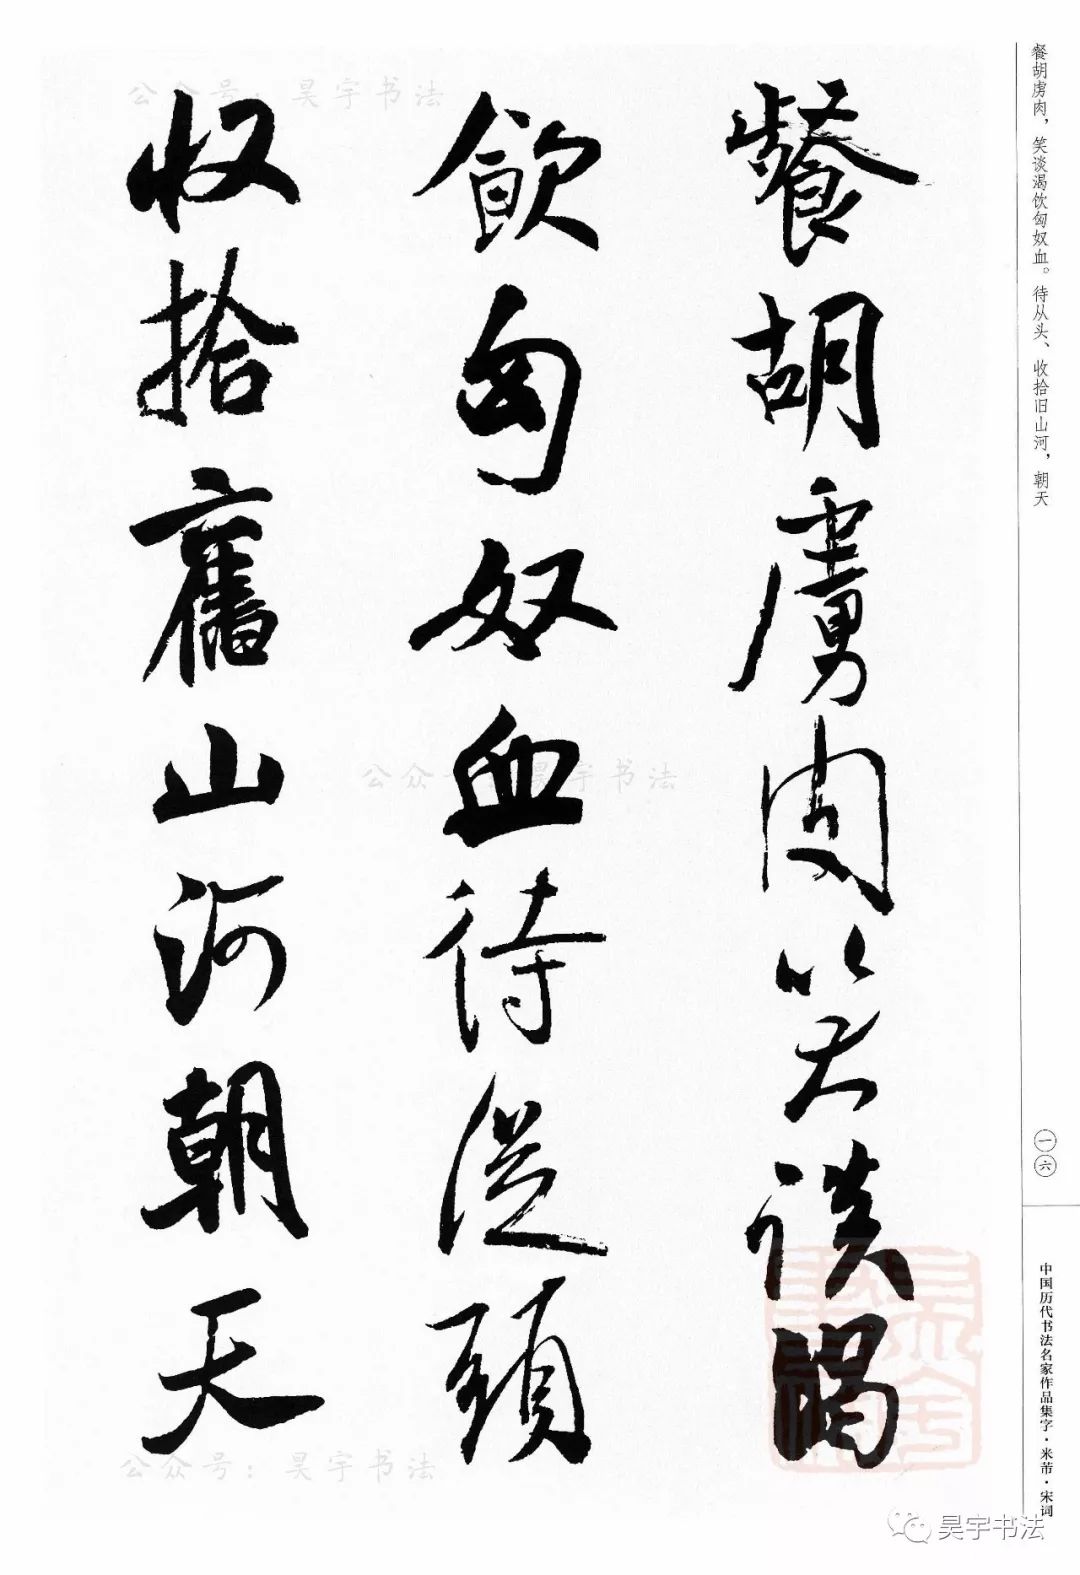 餐胡虏肉，笑谈渴饮匈奴血。待从头、收拾旧山河，朝天
餐胡虜肉笑談渴
飲匈奴血待從頭
收拾舊山河朝天
一六
中国历代书法名家作品集字·米芾·宋词
公众号：昊宇书法
公众号：昊宇书法
公众号：昊宇书法
昊宇书法